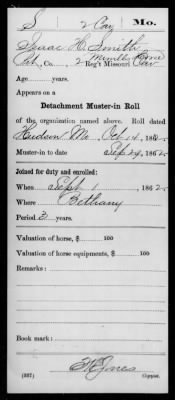 S 2 Cav Mo.
Isaac H. Smith
Pvt, Co. 2 Reg't Missouri Cav
Age years.
Appears on a
Detachment Muster-in Roll
of the organization named above. Roll dated
Hudson Mo, Oct 14, 1862.
Muster-in to date Sep 29, 1862
Joined for duty and enrolled:
When Sept 1, 1862.
Where Bethany
Period 3 years.
Valuation of horse, $ 100
Valuation of horse equipments, $ 100
Remarks:
Book mark:
Jones
(337) Copyist.